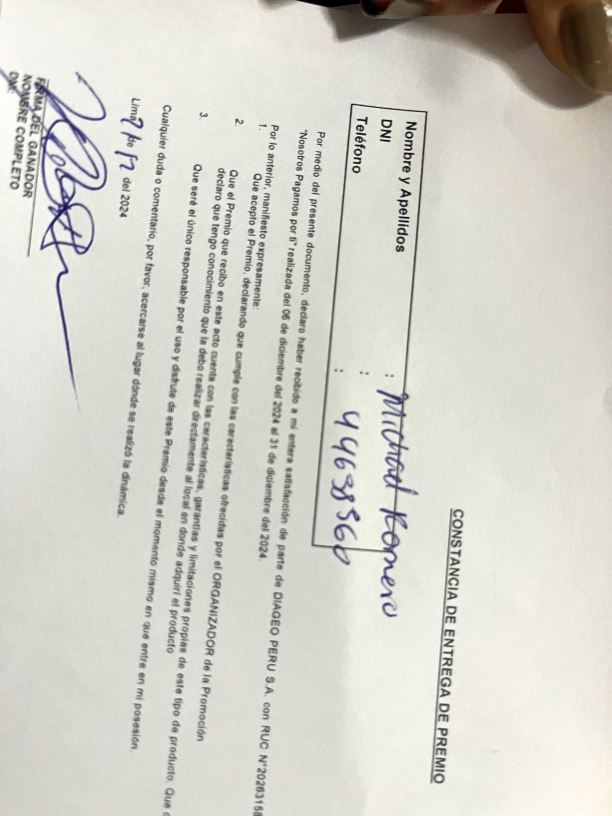 CONSTANCIA DE ENTREGA DE PREMIO
Nombre y Apellidos : Michael Romero
DNI : 44638560
Teléfono :
Por medio del presente documento, declaro haber recibido a mi entera satisfacción de parte de DIAGEO PERU S.A. con RUC N°20263158
"Nosotros Pagamos por ti" realizada del 06 de diciembre del 2024 al 31 de diciembre del 2024.
Por lo anterior, manifiesto expresamente:
1. Que acepto el Premio, declarando que cumple con las características ofrecidas por el ORGANIZADOR de la Promoción
2. Que el Premio que recibo en este acto cuenta con las características, garantías y limitaciones propias de este tipo de producto. Que
declaro que tengo conocimiento que la debo realizar directamente al local en donde adquirí el producto
3. Que seré el único responsable por el uso y disfrute de este Premio desde el momento mismo en que entre en mi posesión.
Cualquier duda o comentario, por favor, acercarse al lugar dónde se realizó la dinámica.
Lima, 7 de 12 del 2024
FIRMA DEL GANADOR
NOMBRE COMPLETO
DNI: